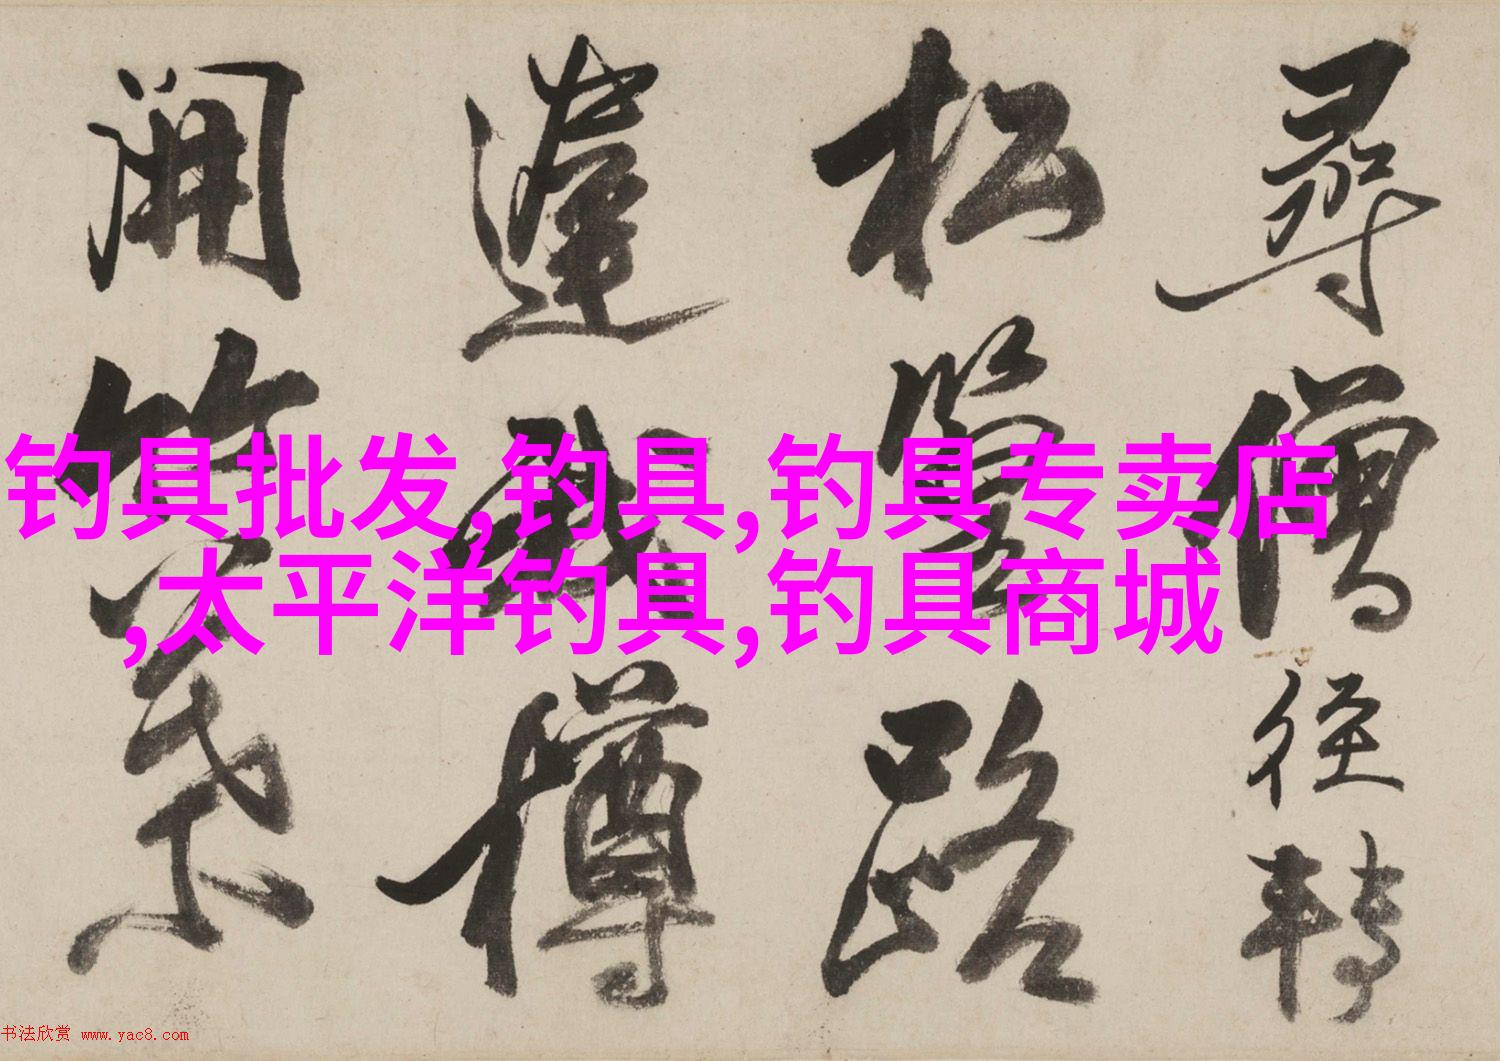 尋僧徑轉
松路
樽
開
钓具批发,钓具,钓具专卖店
,太平洋钓具,钓具商城
书法欣赏 www.yac8.com